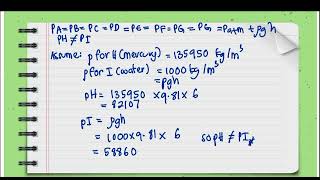 PA=PB=PC=PD=PE=PF=PG=PG=Patm+ρgh
PH≠PI
Assume: ρ for H (mercury) = 135950 kg/m³
ρ for I (water) = 1000 kg/m³
=ρgh
PH = 135950 × 9.81 × 6
= 82107
PI = ρgh
= 1000×9.81 × 6
so PH ≠ PI
= 58860